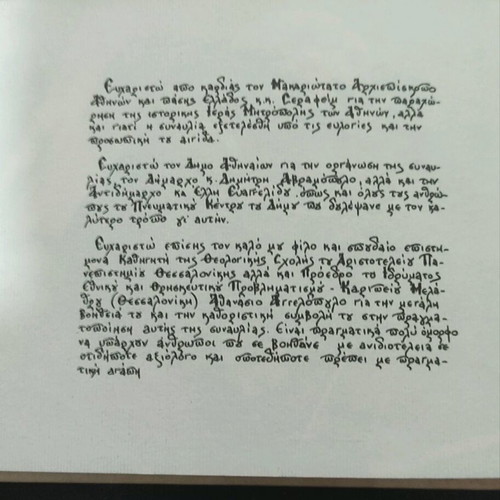 Ευχαριστώ απο καρδιάς τον Μακαριώτατο Αρχιεπίσκοπο
Αθηνών και πάσης Ελλάδος κ.κ. Σεραφείμ για την παραχώ-
ρηση της ιστορικής Ιεράς Μητρόπολης των Αθηνών, αλλά
και γιατί η συναυλία εξετελέσθη υπό τις ευλογίες και την
προσωπική του αιγίδα.
Ευχαριστώ τον Δήμο Αθηναίων για την οργάνωση της συναυ-
λίας, τον Δήμαρχο κ. Δημήτρη Αβραμόπουλο, αλλά και την
Αντιδήμαρχο κα Έλλη Ευαγγελίδου, όπως και όλους τους ανθρώ-
πους του Πνευματικού Κέντρου του Δήμου που δουλέψανε με τον κα-
λύτερο τρόπο γι' αυτήν.
Ευχαριστώ επίσης τον καλό μου φίλο και σπουδαίο επιστή-
μονα Καθηγητή της Θεολογικής Σχολής του Αριστοτελείου Πα-
νεπιστημίου Θεσσαλονίκης αλλά και Πρόεδρο το Ιδρύματος
Εθνικού και Θρησκευτικού Προβληματισμού -
Μελά-
θρου (Θεσσαλονίκη) Αθανάσιο Αγγελόπουλο για την μεγάλη
βοήθεια του και την καθοριστική συμβολή του στην πραγμα-
τοποίηση αυτής της συναυλίας. Είναι πραγματικά πολύ όμορφο
να υπάρχουν άνθρωποι που σε βοηθάνε με ανιδιοτέλεια σε
οτιδήποτε αξιόλογο και οποτεδήποτε πρέπει με πραγμα-
τική αγάπη